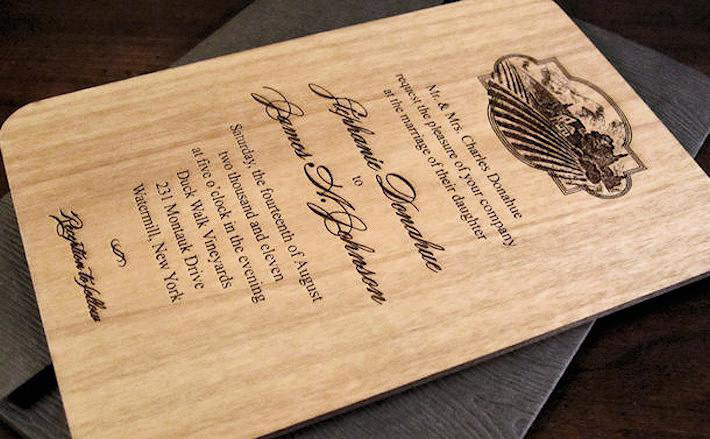 Mr. & Mrs. Charles Donahue
request the pleasure of your company
at the marriage of their daughter
Stephanie Donahue
to
James H. Johnson
Saturday, the fourteenth of August
two thousand and eleven
at five o'clock in the evening
Duck Walk Vineyards
231 Montauk Drive
Watermill, New York
Reception to follow